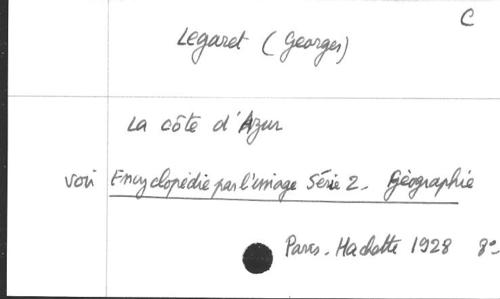 C
Legaret (Georges)
La côte d'Azur
voir Encyclopédie par l'image Série 2 - Géographie
Paris - Hachette 1928 8°